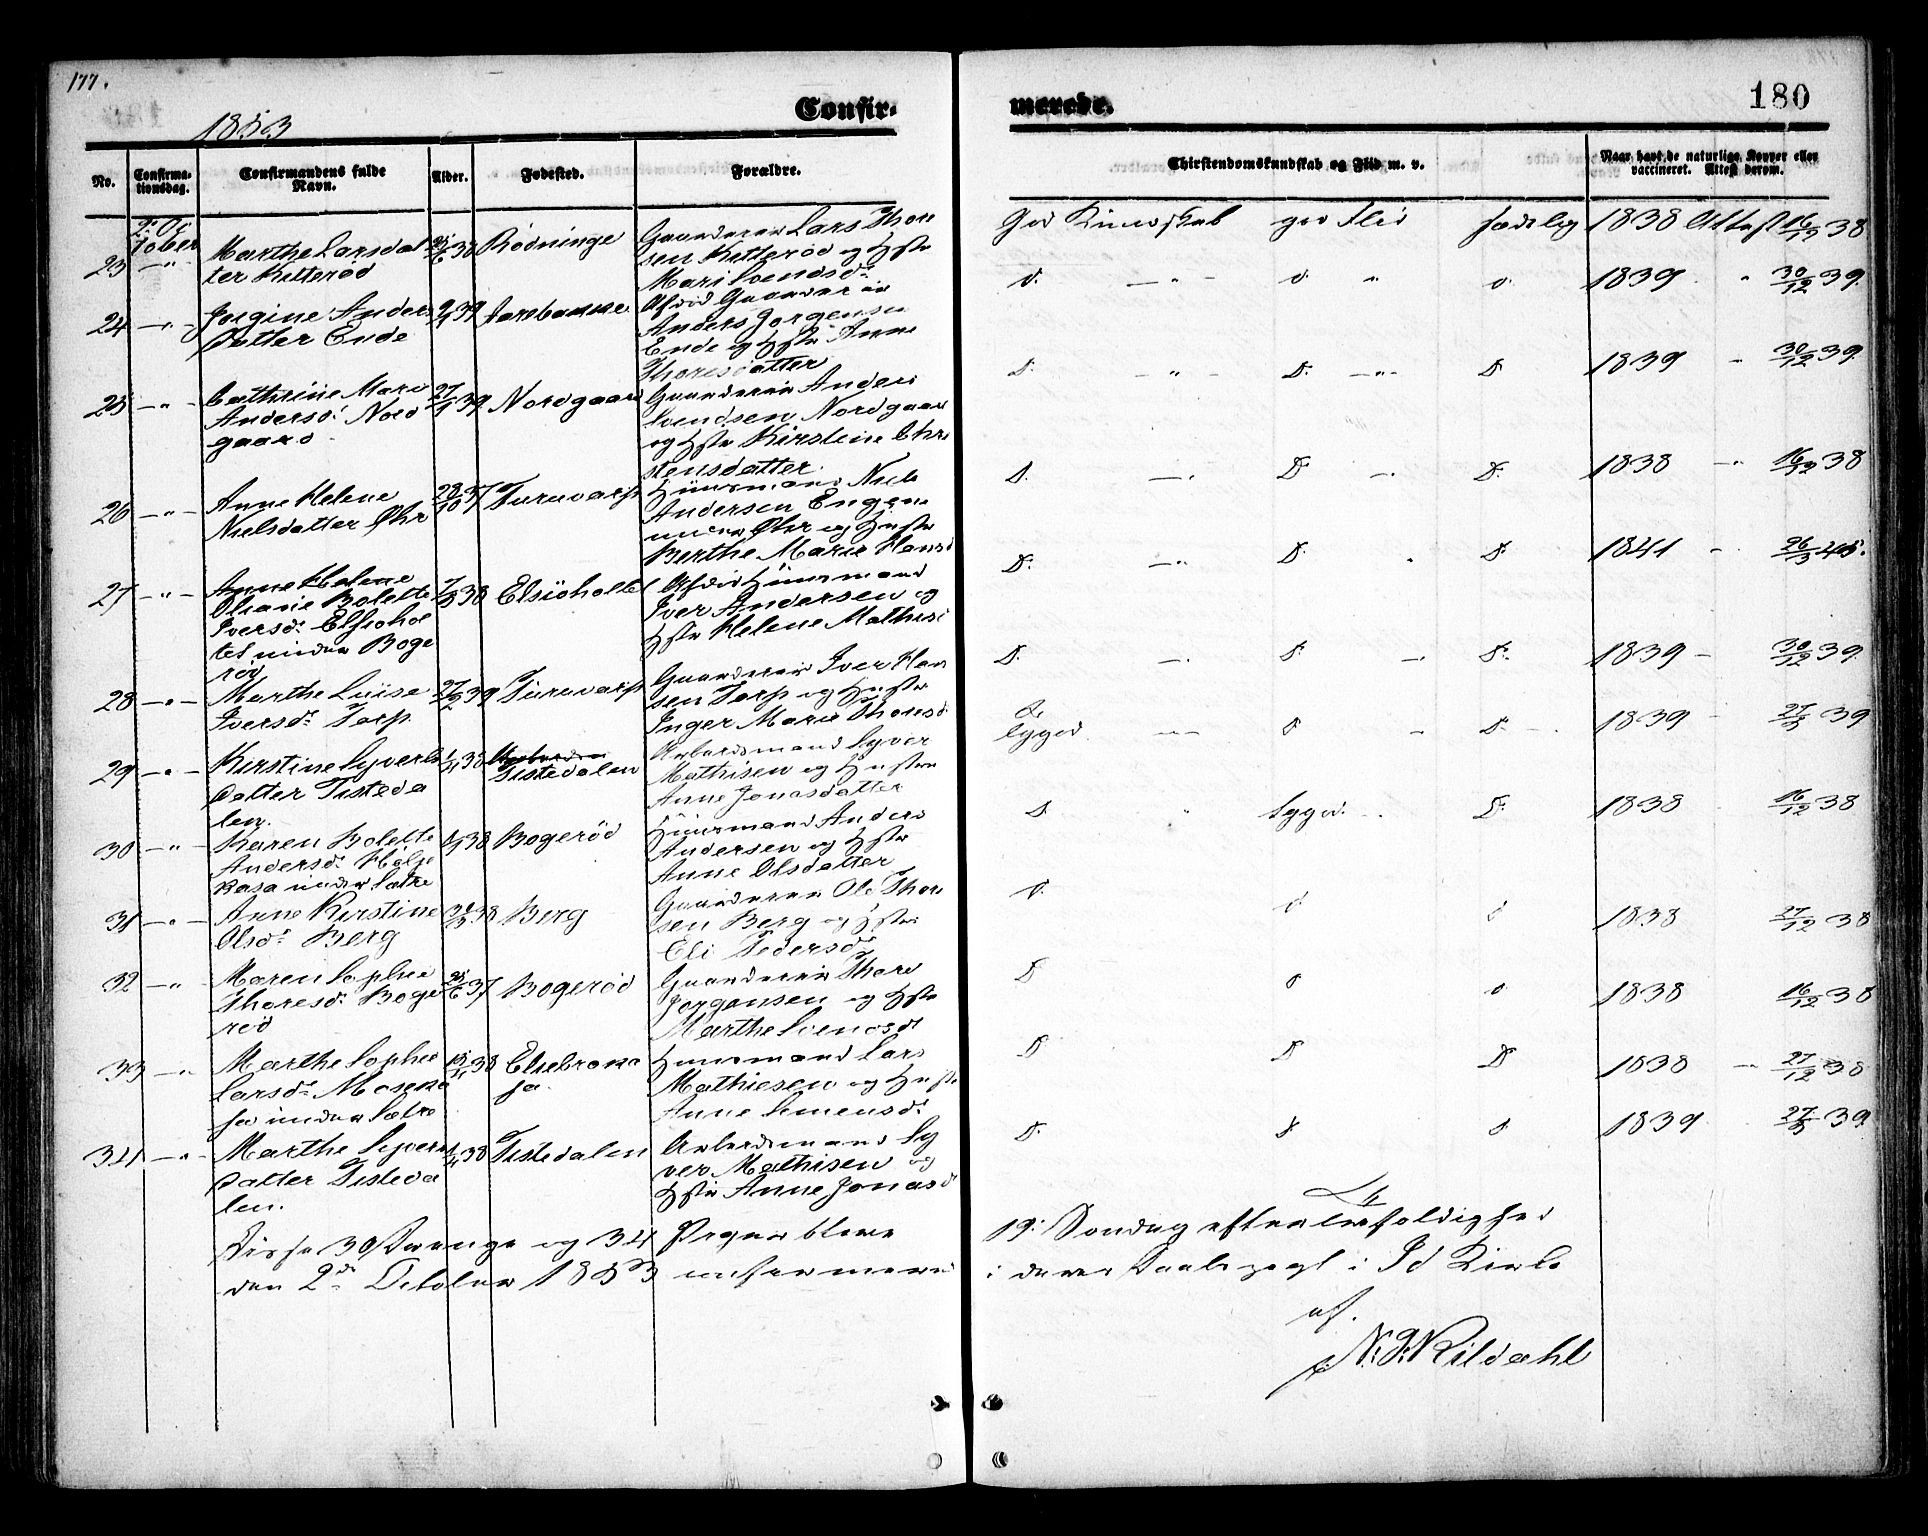 177.
180
1853
Confir-
merede.
No.
Confirma-
tionsdag.
Confirmandens fulde
Navn.
Alder.
Fødested.
Forældre.
Christendomskundskab og Flid m. v.
Naar havt de naturlige Kopper eller
vaccineret. Attest derom.
2. Oc
tober
23 -"- Marthe Larsdat
ter Ketterød
38 Rødninge
Gaardmand Lars Thor
sen Ketterød og Hstr
Mari Svendsd:
God Kundskab god Flid sædelig 1838 Attest 16/12 38
24 -"- Jorgine Anders
datter Ende
39
Afdød Gaardmand
Anders Jorgensen
Ende og Hstr Anne
Thoresdatter
D. -"- D " D 1839 " 30/12 39.
25 -"- Cathrine Marie
Andersd: Nord
gaard
27/1 39 Nordgaard
Gaardmand Anders
Svendsen Nordgaar
og Hstr Kirstine Chri
stensdatter.
D. -"- D. -"- D 1839 - 30/12 39.
26 -"- Anne Helene
Nielsdatter Øhr
28/10 37 Tuuvarp
Huusmand Niels
Andersen Engene
under Øhr og Hustr
Berthe Marie Hansd
D. -"- D - D. 1838 -" 16/12 38
27 -"- Anne Helene
Oliane Bolette
Iversd: Elsioho
ltet under Boge
rød
38 Elsioholtet
Afdød Huusmand
Iver Andersen og
Hstr Helene Mathisd
D. -"- D. " D. 1841 - 26/3 45.
28 -"- Marthe Luise
Iversd: Torp
27/2 39 Tuuvarp
Gaardmand Iver Han
sen Torp og Hustr
Inger Marie Thoresd
D. -. D. -. D. 1839 - 30/12 39.
29 -"- Kirstine Syvers
datter Tisteda
len.
38 Tistedalen
Arbeidsmand Syver
Mathisen og Hustru
Anne Jonasdatter
D. -"- D - D. -. 1839 - 27/3 39
30 -"- Karen Bolette
Andersd:
kasa under Sætre
38 Bogerød
Huusmand Anders
Andersen og Hstr
Anne Olsdatter
D " D: 1838 16/12 38
31 -"- Anne Kirstine
Olsd: Berg
38 Berg
Gaardmand Ole Thor
sen Berg og Hstr:
Eli Pedersd:
D. D D 1838 27/12 38
32 -"- Maren Sophie
Thoresd: Boge
rød
37 Bogerød
Gaardmand Thore
Jorgensen og Hstr
Marthe Svendsd
D D D 1838 16/12 38
33 -"- Marthe Sophie
Larsd: Moseka
sa under Sætre
38 Elsebroka
sa.
Huusmand Lars
Mathiesen og Hustr
Anne Simensd:
D D D 1838 -" 27/12 38
34 -"- Marthe Syvers
datter Tisteda
len.
38 Tistedalen
Arbeidsmand Sy
ver Mathisen og
Hstr Anne Jonasd
D. D D 1839 27/3 39
Disse 30 Drenge og 34 Piger bleve
den 2den October 1853 confirmered
19: Søndag efter Trefoldighed
i deres Daabspagt i Id Kirke
af.
N. J. Kildahl